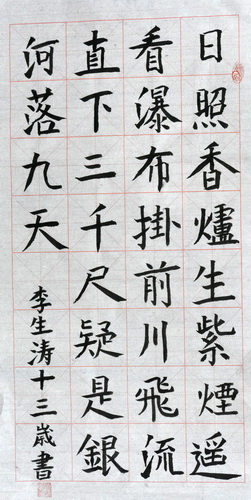 日照香爐生紫煙遥
看瀑布掛前川飛流
直下三千尺疑是銀
河落九天
李生涛十三歳書